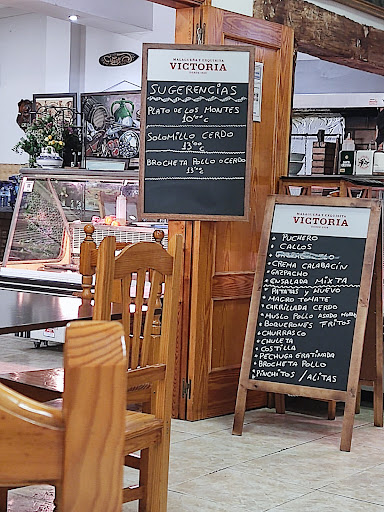 MALAGUEÑA Y EXQUISITA
VICTORIA
SUGERENCIAS
PLATO DE LOS MONTES
10'00€
SOLOMILLO CERDO
13'00€
BROCHETA POLLO O CERDO
VICTORIA
PUCHERO
CALLOS
CREMA CALABACÍN
GAZPACHO
ENSALADA MIXTA
PATATAS Y HUEVO
MAGRO TOMATE
CARRILLADA CERDO
MUSLO POLLO ASADO
BOQUERONES FRITOS
CHURRASCO
CHULETA
COSTILLA
PECHUGA GRATINADA
BROCHETA POLLO
PINCHITOS / ALITAS